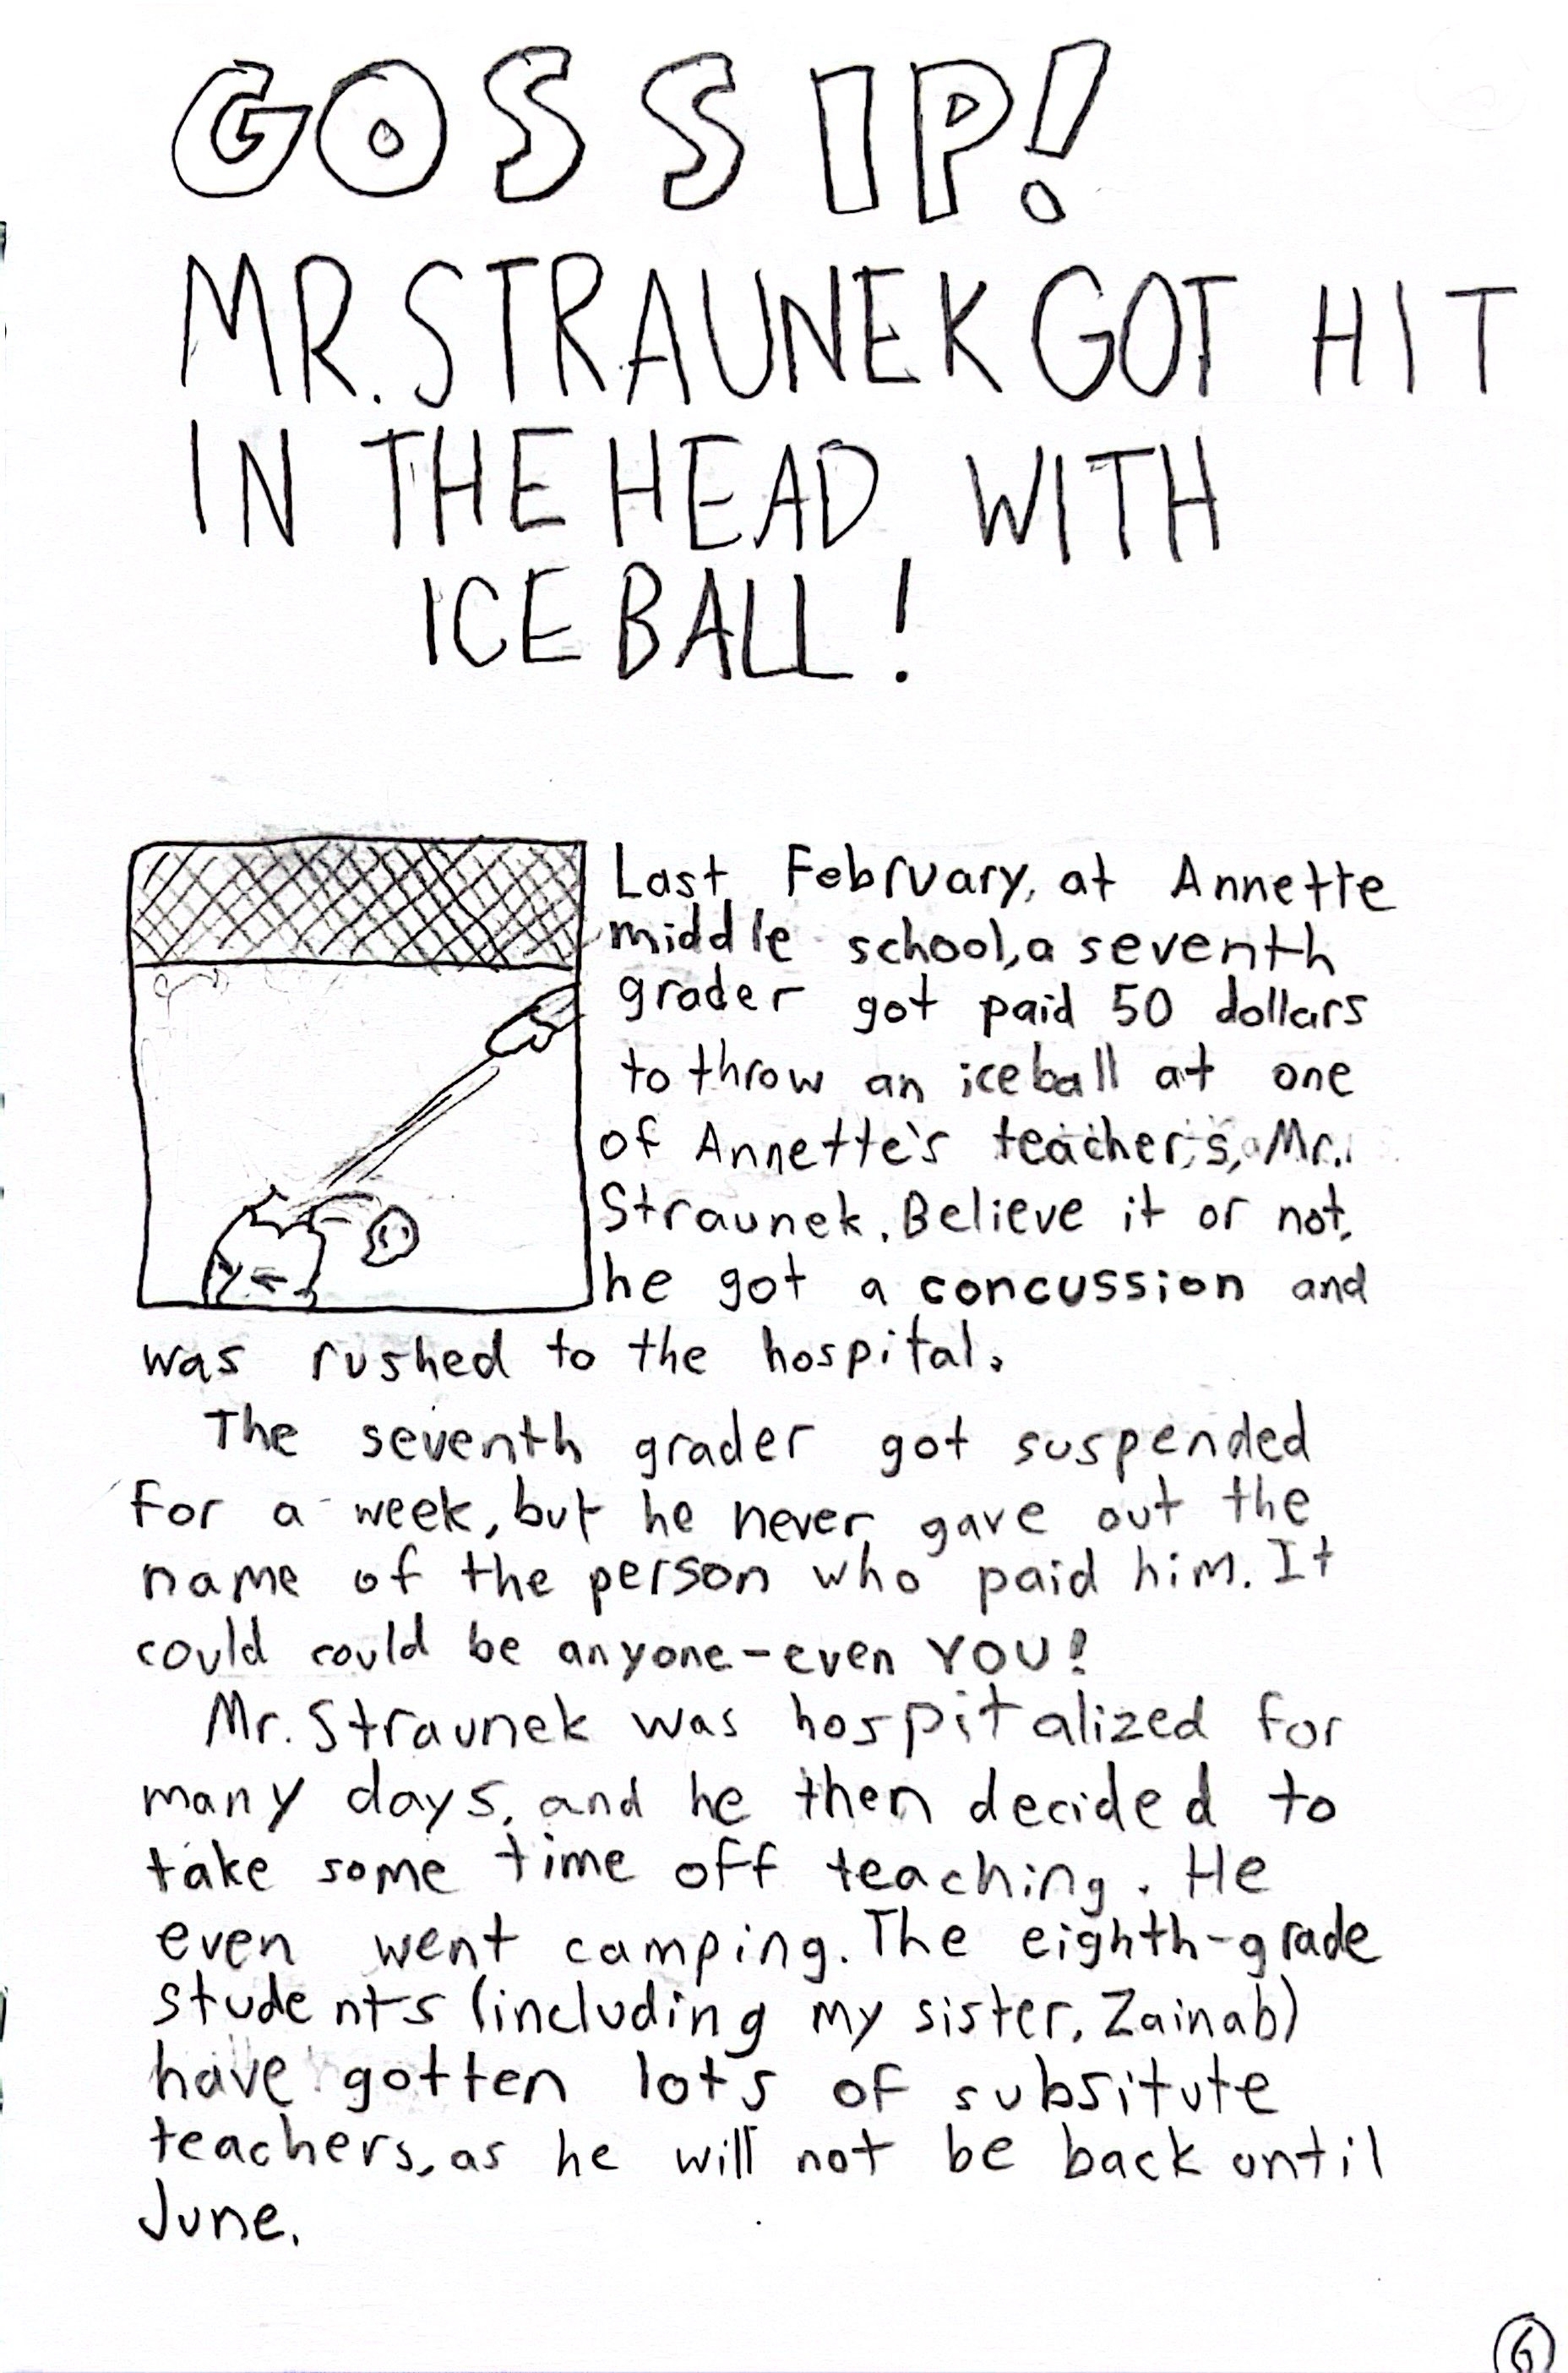 GOSSIP!
MR. STRAUNEK GOT HIT
IN THE HEAD WITH
ICE BALL!
Last February, at Annette
middle school, a seventh
grader got paid 50 dollars
to throw an iceball at one
of Annette's teachers, Mr.
Straunek. Believe it or not,
he got a concussion and
was rushed to the hospital.
The seventh grader got suspended
for a week, but he never gave out the
name of the person who paid him. It
could could be anyone-even YOU!
Mr. Straunek was hospitalized for
many days, and he then decided to
take some time off teaching. He
even went camping. The eighth-grade
students (including my sister, Zainab)
have gotten lots of subsitute
teachers, as he will not be back until
June.
6